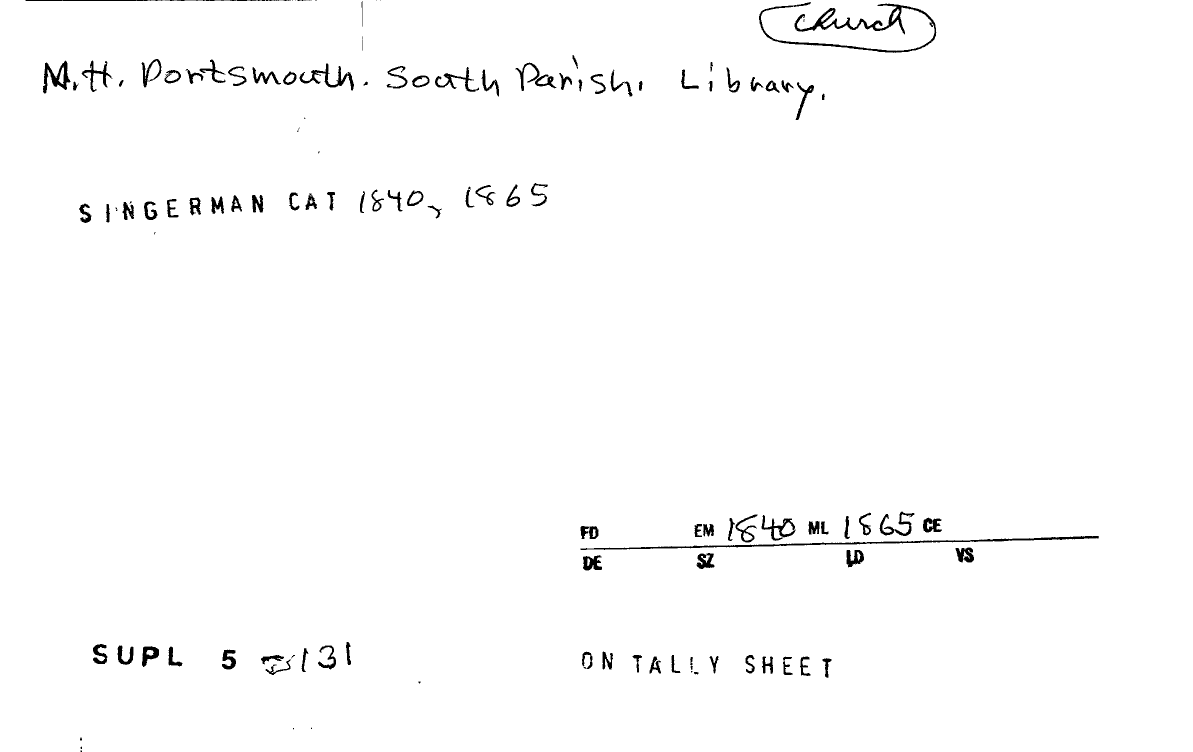 church
N.H. Portsmouth. South Parish. Library.
SINGERMAN CAT 1840, 1865
FD EM 1840 ML 1865 CE
DE SZ LD VS
SUPL 5 131
ON TALLY SHEET